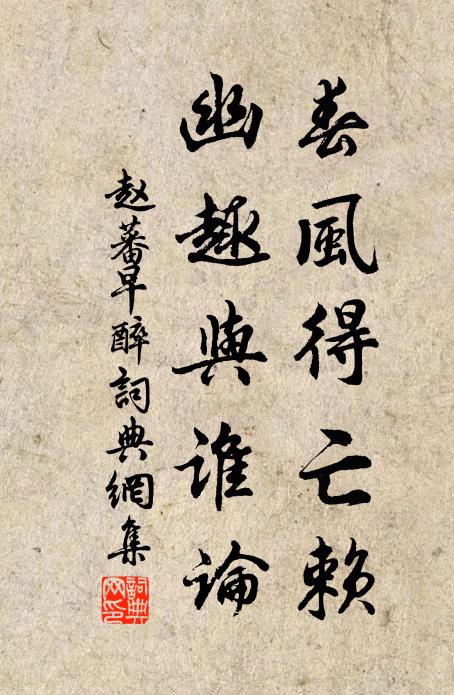 春風得亡賴
幽趣與誰論
赵蕃早醉詞典網集
詞典网印